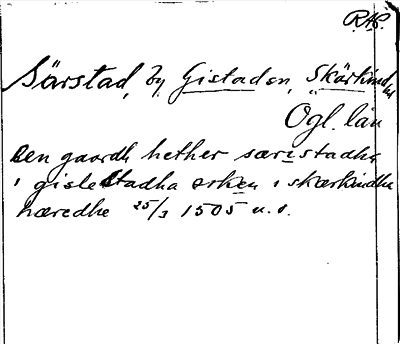 RAP.
Särstad, by, Gistadsn, Skärkinds hd
Ögl. län
den gaardh hether særistadha
i gislestadha sokn i skærkindha
hæredhe 25/3 1505 u. o.